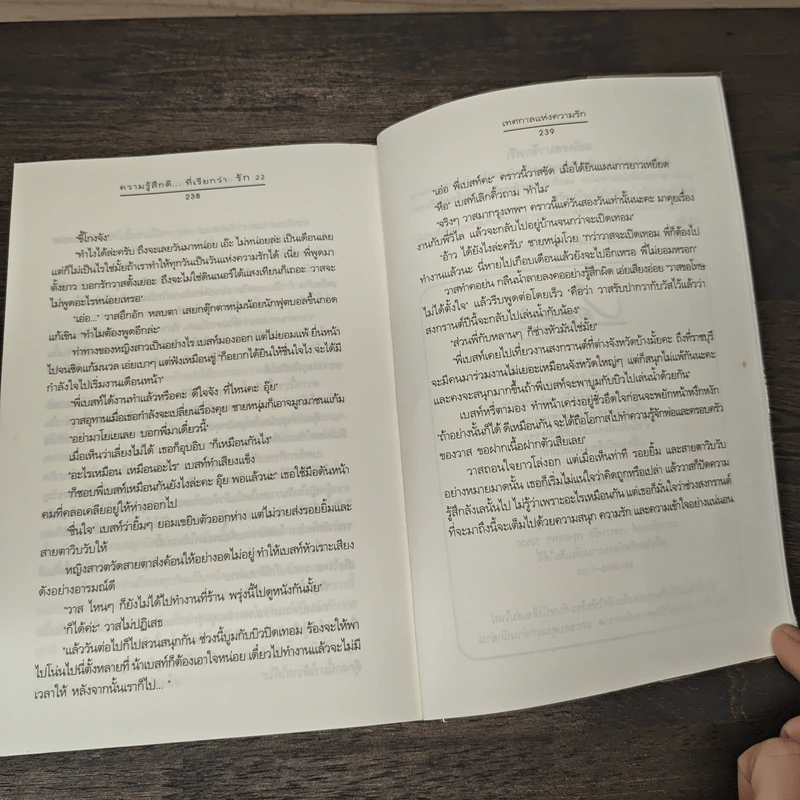 ความรู้สึกดี....ที่เรียกว่า.. รัก 22
238
"ขี้โกงจัง"
"ทำไงได้ล่ะครับ ถึงจะเลยวันมาหน่อย เอ๊ะ ไม่หน่อยล่ะ เป็นเดือนเลย
แต่ก็ไม่เป็นไรใช่มั้ยถ้าเราทำให้ทุกวันเป็นวันแห่งความรักได้ เนี่ย พี่พูดมา
ตั้งยาว บอกรักวาสตั้งเยอะ ถึงจะไม่ใช่ดินเนอร์ใต้แสงเทียนก็เถอะ วาสจะ
ไม่พูดอะไรหน่อยเหรอ"
"เอ่อ..." วาสอึกอัก หลบตา เสยกตุ๊กตาหนุ่มน้อยนักฟุตบอลขึ้นกอด
แก้เขิน "ทำไมต้องพูดอีกล่ะ"
ท่าทางของหญิงสาวเป็นอย่างไร เบสท์มองออก แต่ไม่ยอมแพ้ ยื่นหน้า
ไปจนชิดแก้มนวล เอ่ยเบาๆ แต่ฟังเหมือนขู่ "ก็อยากได้ยินให้ชื่นใจไง จะได้มี
กำลังใจไปเริ่มงานเดือนหน้า"
"พี่เบสท์ได้งานทำแล้วหรือคะ ดีใจจัง ที่ไหนคะ อุ๊ย"
วาสอุทานเมื่อเธอกำลังจะเปลี่ยนเรื่องคุย ชายหนุ่มก็เอาจมูกมาชนแก้ม
"อย่ามาโยเยเลย บอกพี่มาเดี๋ยวนี้"
เมื่อเห็นว่าเลี่ยงไม่ได้ เธอก็อุบอิบ "ก็เหมือนกันไง"
"อะไรเหมือน เหมือนอะไร" เบสท์ทำเสียงแข็ง
"ก็ชอบพี่เบสท์เหมือนกันยังไงล่ะคะ อุ๊ย พอแล้วนะ" เธอใช้มือดันหน้า
คมที่คลอเคลียอยู่ให้ห่างออกไป
"ชื่นใจ" เบสท์ว่ายิ้มๆ ยอมเขยิบตัวออกห่าง แต่ไม่วายส่งรอยยิ้มและ
สายตาวิบวับให้
หญิงสาวตวัดสายตาส่งค้อนให้อย่างอดไม่อยู่ ทำให้เบสท์หัวเราะเสียง
ดังอย่างอารมณ์ดี
"วาส ไหนๆ ก็ยังไม่ได้ไปทำงานที่ร้าน พรุ่งนี้ไปดูหนังกันมั้ย"
"ก็ได้ค่ะ" วาสไม่ปฏิเสธ
"แล้ววันต่อไปก็ไปสวนสนุกกัน ช่วงนี้บูมกับบิวปิดเทอม ร้องจะให้พา
ไปโน่นไปนี่ตั้งหลายที่ น้าเบสท์ก็ต้องเอาใจหน่อย เดี๋ยวไปทำงานแล้วจะไม่มี
เวลาให้ หลังจากนั้นเราก็ไป... "
เทศกาลแห่งความรัก
239
"เอ่อ พี่เบสท์คะ" คราวนี้วาสขัด เมื่อได้ยินแผนการยาวเหยียด
"หือ" เบสท์เลิกคิ้วถาม "ทำไม"
"จริงๆ วาสมากรุงเทพฯ คราวนี้แค่วันสองวันเท่านั้นนะคะ มาคุยเรื่อง
งานกับพี่วิไล แล้วจะกลับไปอยู่บ้านจนกว่าจะเปิดเทอม"
"อ้าว ได้ยังไงล่ะครับ" ชายหนุ่มโวย "กว่าวาสจะเปิดเทอม พี่ก็ต้องไป
ทำงานแล้วนะ นี่หายไปเกือบเดือนแล้วยังจะไปอีกเหรอ พี่ไม่ยอมหรอก"
วาสทำคอย่น กลืนน้ำลายลงคออย่างรู้สึกผิด เอ่ยเสียงอ่อย "วาสขอโทษ
ไม่ได้ตั้งใจ" แล้วรีบพูดต่อโดยเร็ว "คือว่า วาสรับปากวากับวัสไว้แล้วว่า
สงกรานต์ปีนี้จะกลับไปเล่นน้ำกับน้อง"
"ส่วนพี่กับหลานๆ ก็ช่างหัวมันใช่มั้ย"
"พี่เบสท์เคยไปเที่ยวงานสงกรานต์ที่ต่างจังหวัดบ้างมั้ยคะ ถึงที่ราชบุรี
จะมีคนมาร่วมงานไม่เยอะเหมือนจังหวัดใหญ่ๆ แต่ก็สนุกไม่แพ้กันนะคะ
และคงจะสนุกมากขึ้นถ้าพี่เบสท์จะพาบูมกับบิวไปเล่นน้ำด้วยกัน"
เบสท์หรี่ตามอง ทำหน้าเคร่งอยู่ชั่วอึดใจก่อนจะพยักหน้าหงึกหงัก
"ถ้าอย่างนั้นก็ได้ ดีเหมือนกัน จะได้ถือโอกาสไปทำความรู้จักพ่อและครอบครัว
ของวาส ขอฝากเนื้อฝากตัวเสียเลย"
วาสถอนใจยาวโล่งอก แต่เมื่อเห็นท่าที รอยยิ้ม และสายตาวิบวับ
อย่างหมายมาดนั้น เธอก็เริ่มไม่แน่ใจว่าคิดถูกหรือเปล่า แล้ววาสก็ปัดความ
รู้สึกลังเลนั้นไป ไม่รู้ว่าเพราะอะไรเหมือนกัน แต่เธอก็มั่นใจว่าช่วงสงกรานต์
ที่จะมาถึงนี้จะเต็มไปด้วยความสนุก ความรัก และความเข้าใจอย่างแน่นอน